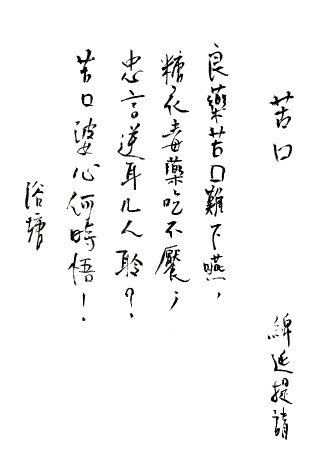 苦口
綿延提請
良藥苦口難下嚥，
糖衣毒藥吃不饜；
忠言逆耳几人聆？
苦口婆心何時悟！
浴塘